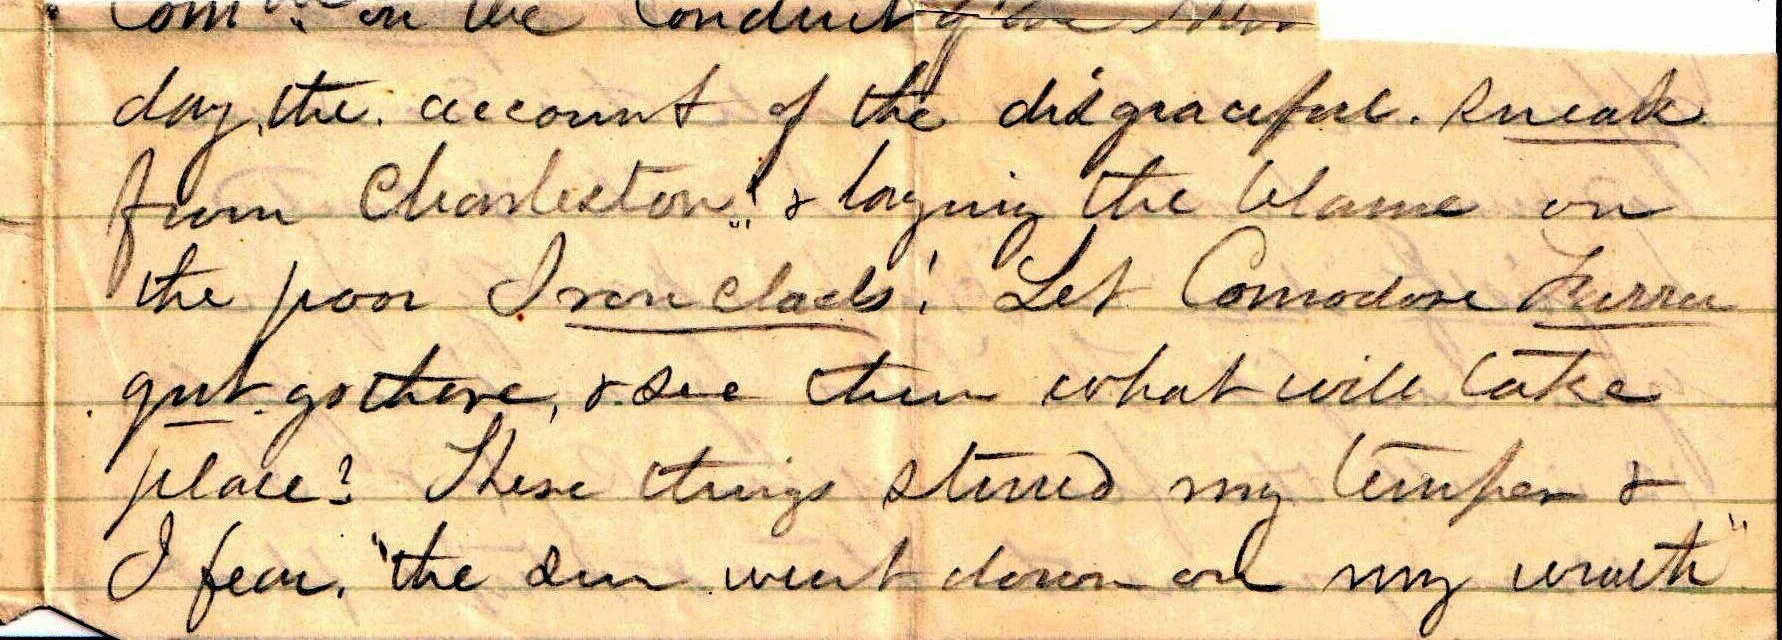 Com on the Conduct of the
day, the account of the disgraceful sneak
from Charleston"! & laying the blame on
the poor Iron clads! Let Comodore Farra
gut go there, & see then what will take
place? These things stirred my temper &
I fear, "the sun went down on my wrath"